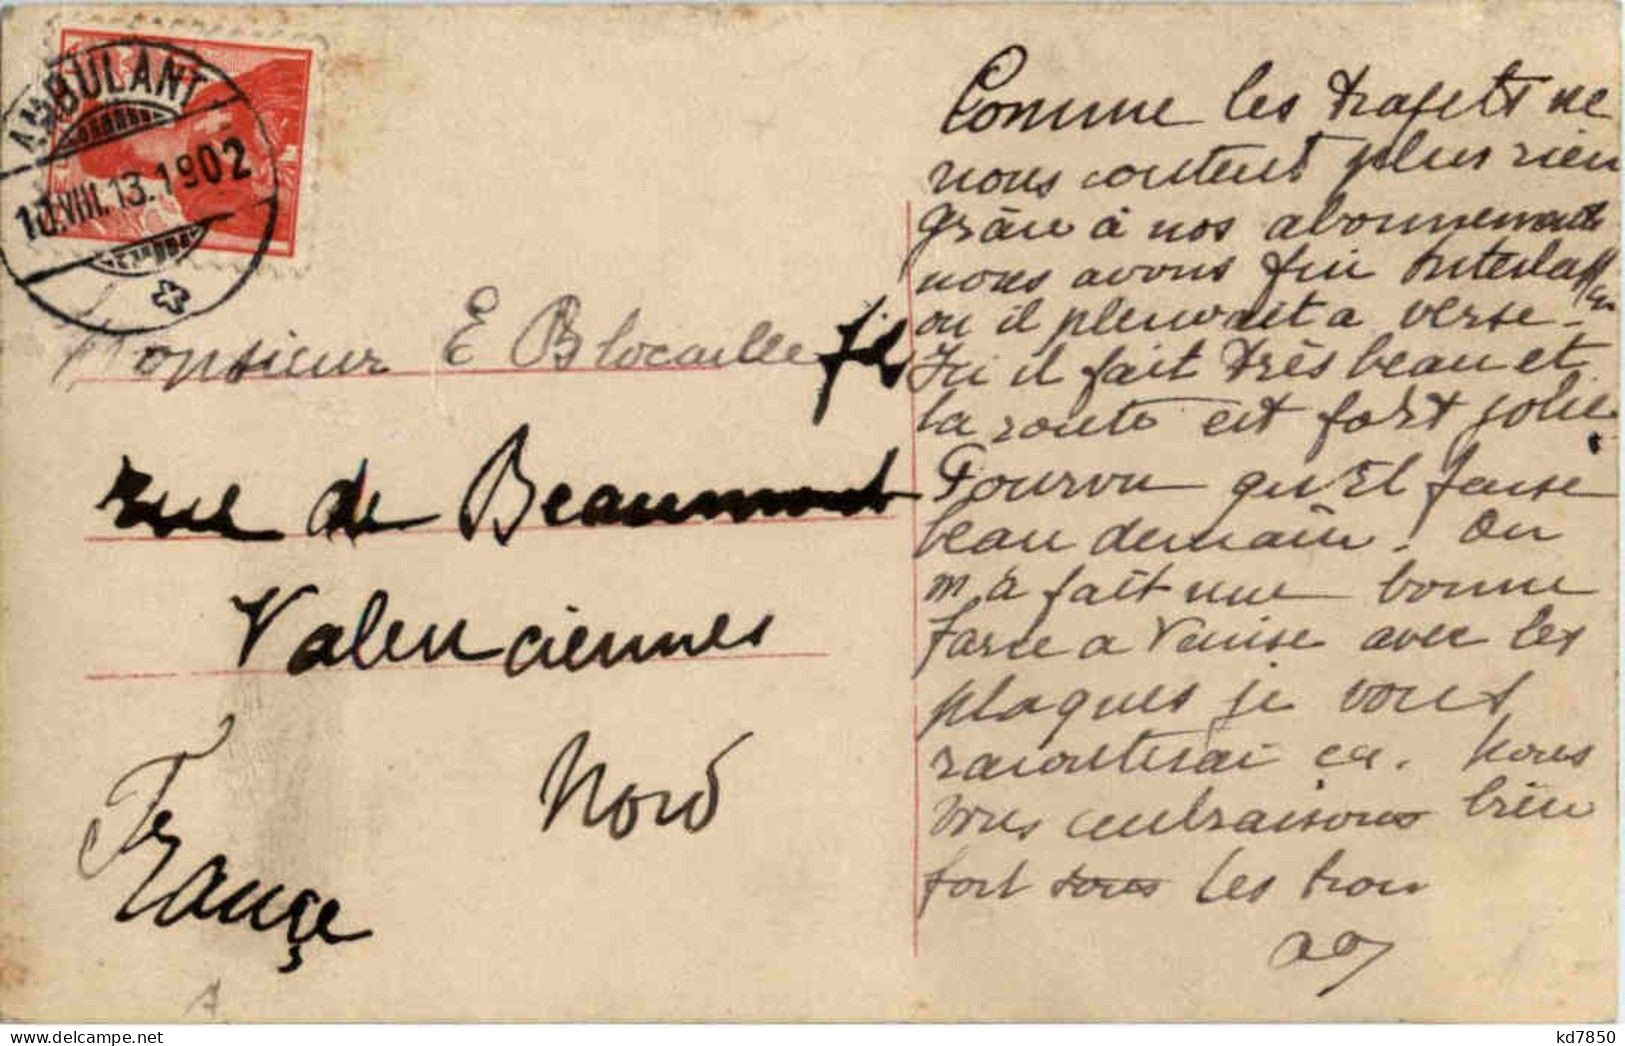 AMBULANT
10.VIII.13.1902
Monsieur E Blocaille fils
rue de Beaumont
Valenciennes
Nord
France
Comme les trajets ne
nous coutent plus rien
grâce à nos abonnements
nous avons fui Interlaken
ou il pleuvait a verse.
Ici il fait très beau et
la route est fort jolie.
Pourvu qu'il fasse
beau demain. On
m'a fait une bonne
farce a Venise avec les
plaques je vous
raconterai ca. Nous
vous embrassons bien
fort tous les trois
A
kd7850